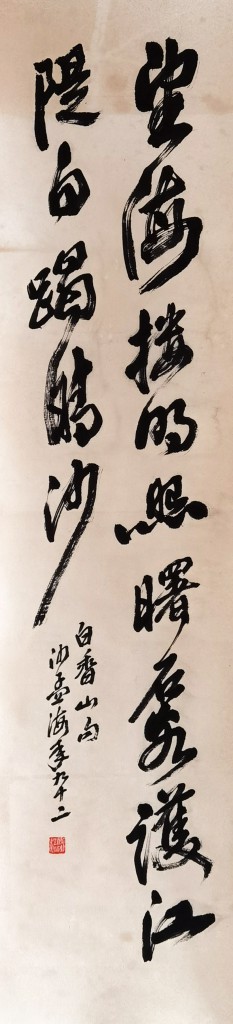 望海樓明照曙霞護江
隄白蹋晴沙
白香山句
沙孟海年九十二